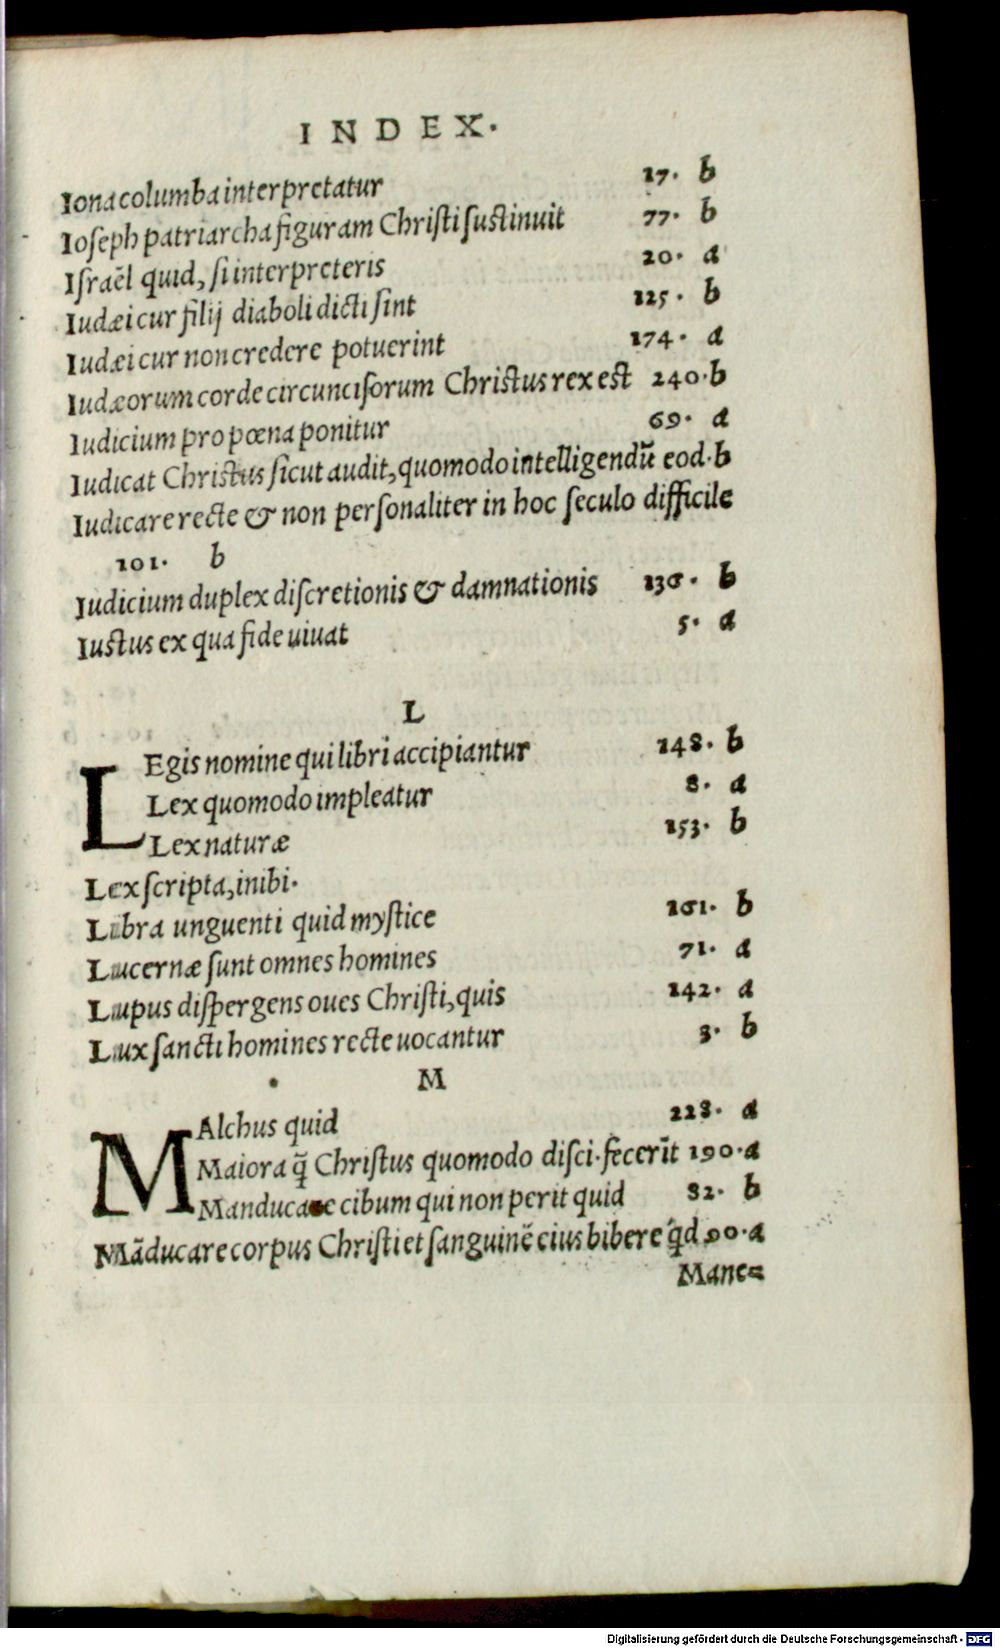 INDEX.
Iona columba interpretatur 17. b
Ioſeph patriarcha figuram Chriſti ſuſtinuit 77. b
Iſraël quid, ſi interpreteris 20. a
Iudæi cur filij diaboli dicti ſint 125. b
Iudæi cur non credere potuerint 174. a
Iudæorum corde circunciſorum Chriſtus rex eſt 240. b
Iudicium pro pœna ponitur 69. a
Iudicat Chriſtus ſicut audit, quomodo intelligendū eod. b
Iudicare recte & non perſonaliter in hoc ſeculo difficile
101. b
Iudicium duplex diſcretionis & damnationis 136. b
Iuſtus ex qua fide uiuat 5. a
L
LEgis nomine qui libri accipiantur 148. b
Lex quomodo impleatur 8. a
Lex naturæ 153. b
Lex ſcripta, inibi.
Libra unguenti quid myſtice 161. b
Lucernæ ſunt omnes homines 71. a
Lupus diſpergens oues Chriſti, quis 142. a
Lux ſancti homines recte uocantur 3. b
M
MAlchus quid 228. a
Maiora q̄ Chriſtus quomodo diſci. fecerīt 190. a
Manducare cibum qui non perit quid 82. b
Māducare corpus Chriſti et ſanguinē eius bibere qd 90. a
Mane=
Digitalisierung gefördert durch die Deutsche Forschungsgemeinschaft - DFG